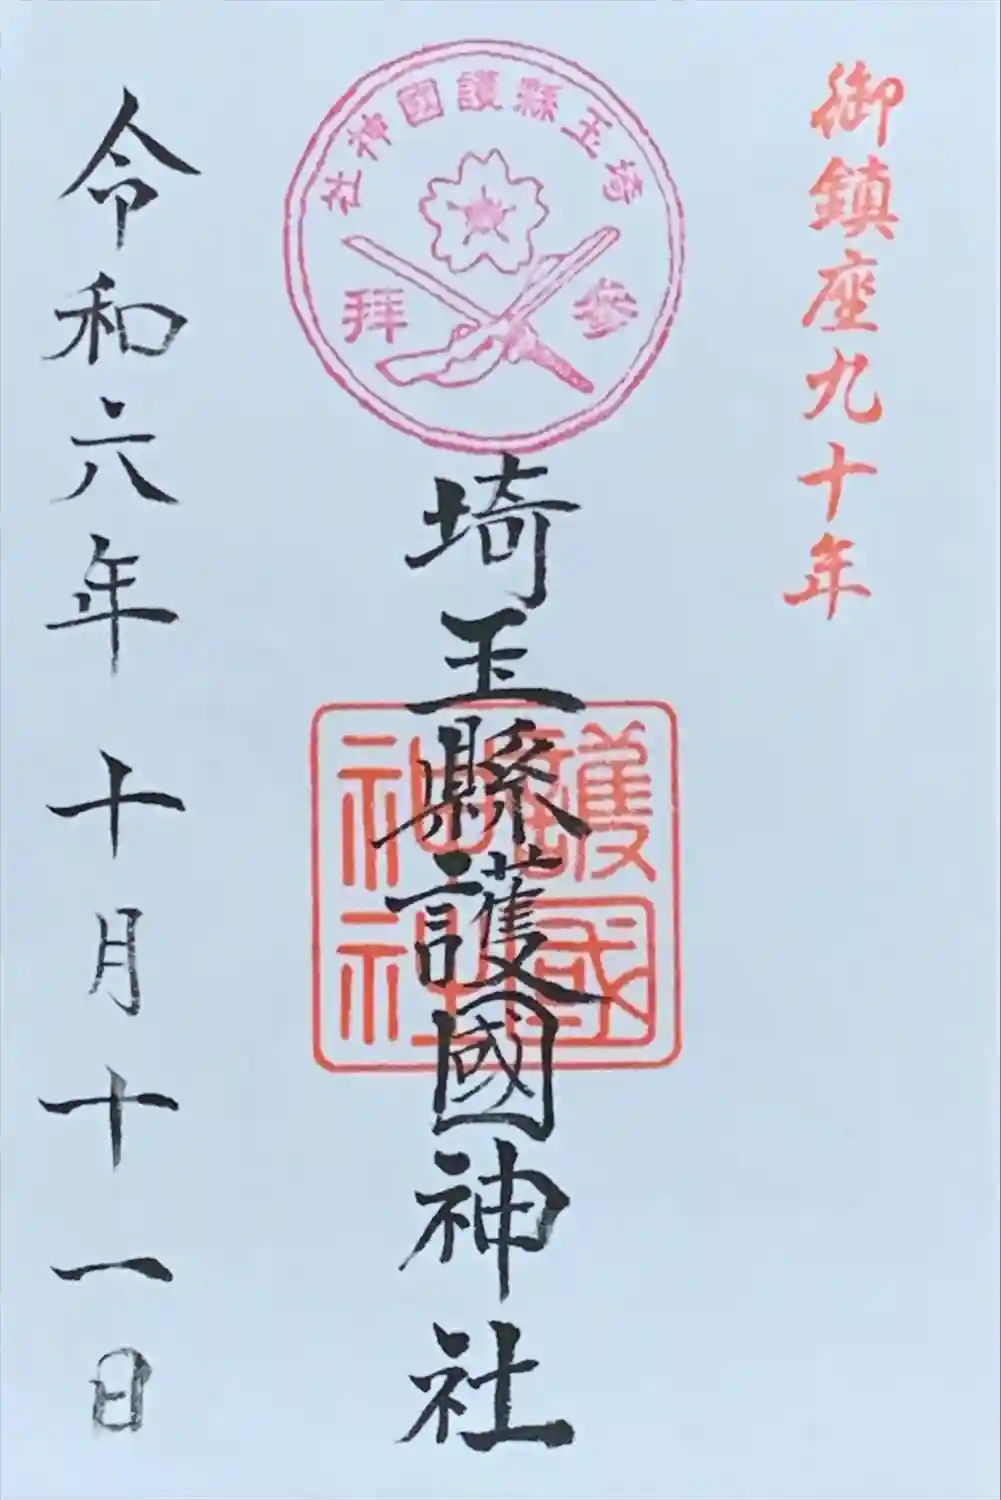 御鎮座九十年
埼玉縣護國神社
參拜
埼玉縣護國神社
護國
神社
令和六年十月十一日